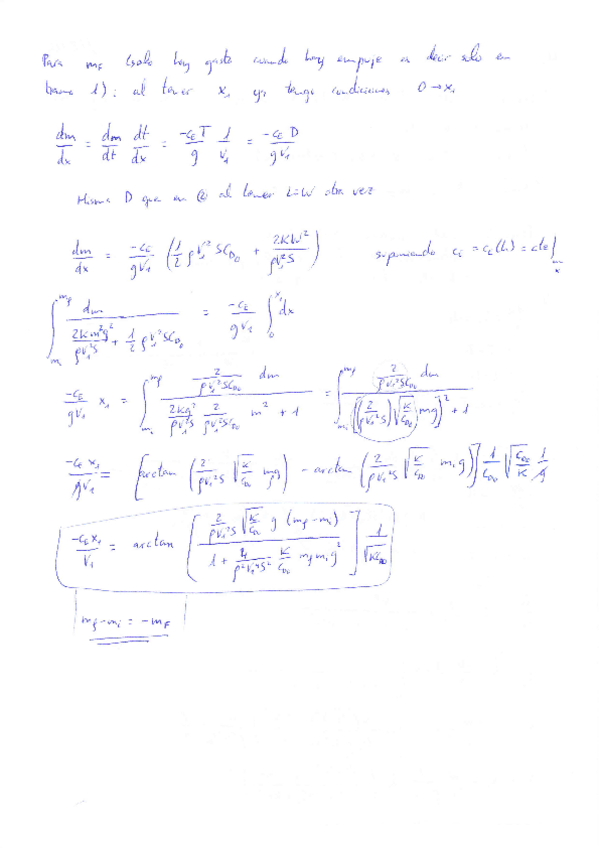 Para m_F (solo hay gasto cuando hay empuje es decir solo en
tramo 1): al tener x₁ ya tengo condiciones 0 → x₁
dm/dx = dm/dt dt/dx = -c_E T/g 1/V₁ = -c_E D/(g V₁)
Misma D que en al tener L=W otra vez
dm/dx = -c_E/(g V₁) (1/2 ρ V₁² S C_D₀ + 2KW²/(ρ V₁² S)) suponiendo c_E = c_E(h) = cte|
∫_{m_i}^{m_f} dm/(2K m² g²/(ρ V₁² S) + 1/2 ρ V₁² S C_D₀) = -c_E/(g V₁) ∫_0^{x₁} dx
-c_E/(g V₁) x₁ = ∫_{m_i}^{m_f} (2/(ρ V₁² S C_D₀) dm)/(2K g²/(ρ V₁² S) 2/(ρ V₁² S C_D₀) m² + 1) = ∫_{m_i}^{m_f} (2/(ρ V₁² S C_D₀) dm)/([(2/(ρ V₁² S)) √(K/C_D₀) mg]² + 1)
-c_E x₁/(g V₁) = [arctan (2/(ρ V₁² S) √(K/C_D₀) m_f g) - arctan (2/(ρ V₁² S) √(K/C_D₀) m_i g)] 1/C_D₀ √(C_D₀/K) 1/g
-c_E x₁/V₁ = arctan [(2/(ρ V₁² S) √(K/C_D₀) g (m_f - m_i))/(1 + 4/(ρ² V₁⁴ S²) K/C_D₀ m_f m_i g²)] 1/√(K C_D₀)
m_f - m_i = -m_F